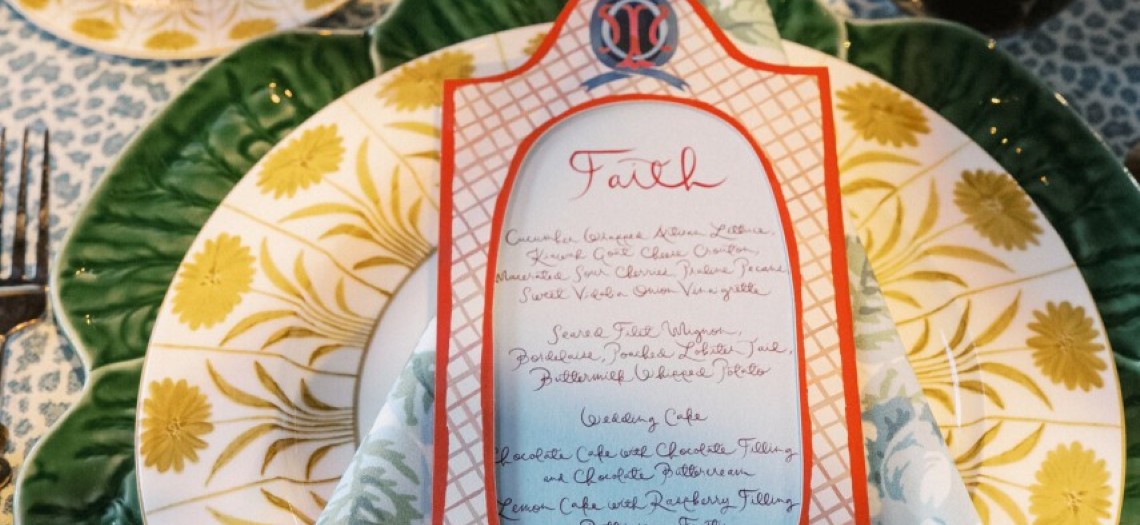 Faith
Cucumber Wrapped Artisan Lettuce,
Kiawah Goat Cheese Crouton,
Macerated Sour Cherries, Praline Pecans,
Sweet Vidalia Onion Vinaigrette
Seared Filet Mignon,
Bordelaise, Poached Lobster Tail,
Buttermilk Whipped Potato
Wedding Cake
Chocolate Cake with Chocolate Filling
and Chocolate Buttercream
Lemon Cake with Raspberry Filling